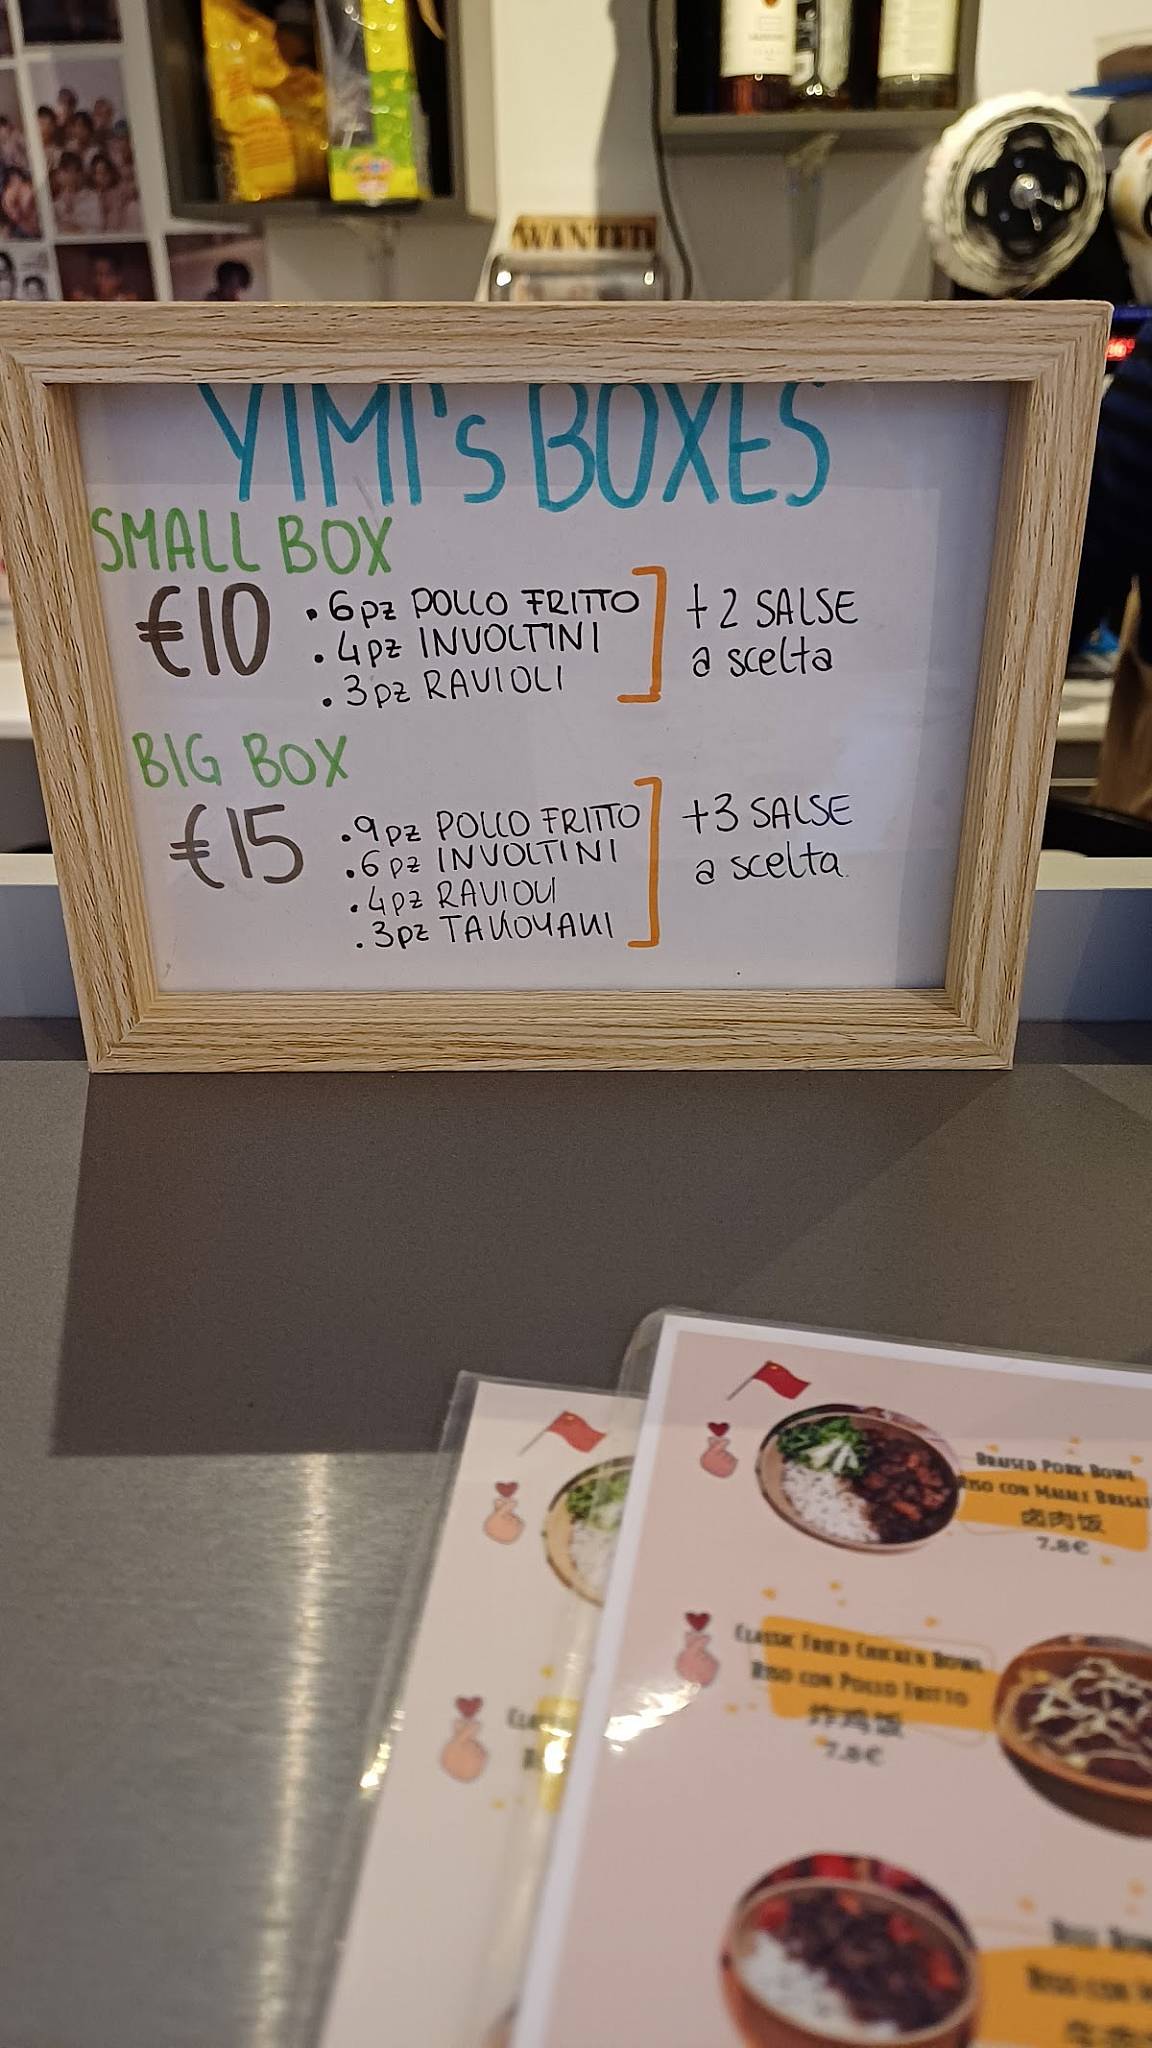 WANTED
YIMI's BOXES
SMALL BOX
€10
. 6pz POLLO FRITTO
. 4pz INVOLTINI
. 3pz RAVIOLI
+ 2 SALSE
a scelta
BIG BOX
€15
. 9pz POLLO FRITTO
. 6pz INVOLTINI
. 4pz RAVIOLI
. 3pz TAKOYAKI
+3 SALSE
a scelta.
BRAISED PORK BOWL
RISO CON MAIALE BRASAT
卤肉饭
7.8€
CLASSIC FRIED CHICKEN BOWL
RISO CON POLLO FRITTO
炸鸡饭
7.8€
RISO CON